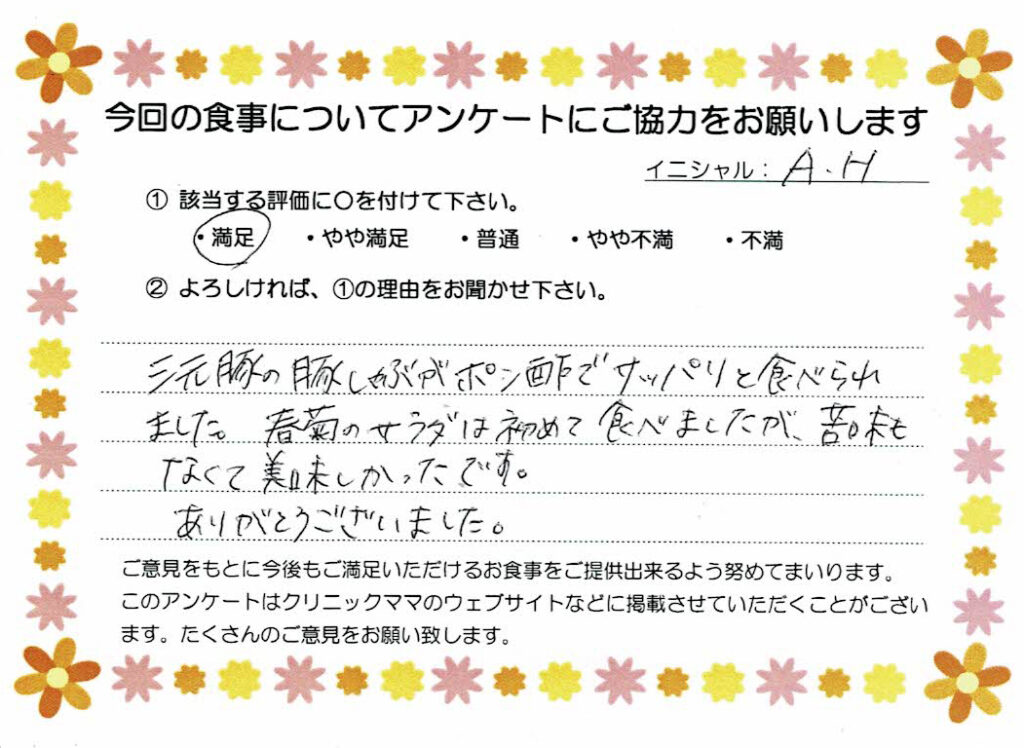 今回の食事についてアンケートにご協力をお願いします
イニシャル：A.H
① 該当する評価に〇を付けて下さい。
・満足 ・やや満足 ・普通 ・やや不満 ・不満
② よろしければ、①の理由をお聞かせ下さい。
三元豚の豚しゃぶがポン酢でサッパリと食べられ
ました。春菊のサラダは初めて食べましたが、苦味も
なくて美味しかったです。
ありがとうございました。
ご意見をもとに今後もご満足いただけるお食事をご提供出来るよう努めてまいります。
このアンケートはクリニックママのウェブサイトなどに掲載させていただくことがござい
ます。たくさんのご意見をお願い致します。